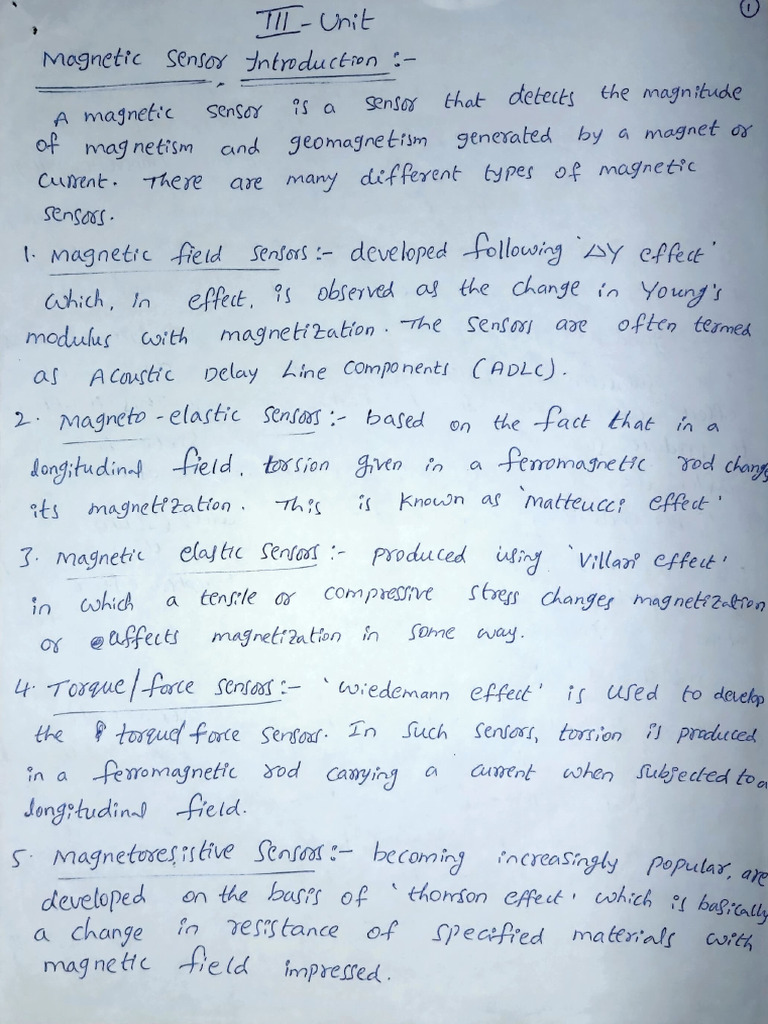 ①
III - Unit
Magnetic Sensor Introduction :-
A magnetic sensor is a sensor that detects the magnitude
of magnetism and geomagnetism generated by a magnet or
current. There are many different types of magnetic
sensors.
1. Magnetic field sensors :- developed following 'ΔY effect'
which, in effect, is observed as the change in Young's
modulus with magnetization. The sensors are often termed
as Acoustic Delay Line Components (ADLC).
2. Magneto-elastic sensors :- based on the fact that in a
longitudinal field, torsion given in a ferromagnetic rod change
its magnetization. This is known as 'matteucci effect'
3. Magnetic elastic sensors :- produced using 'Villari effect'
in which a tensile or compressive stress changes magnetization
or affects magnetization in some way.
4. Torque/force sensors :- 'wiedemann effect' is used to develop
the torque/force sensors. In such sensors, torsion is produced
in a ferromagnetic rod carrying a current when subjected to a
longitudinal field.
5. Magnetoresistive Sensors :- becoming increasingly popular, are
developed on the basis of 'thomson effect' which is basically
a change in resistance of specified materials with
magnetic field impressed.